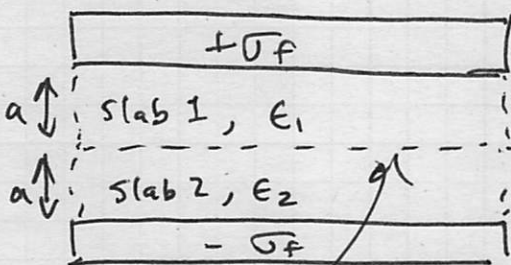 +σf
a slab 1, ϵ₁
a slab 2, ϵ₂
- σf